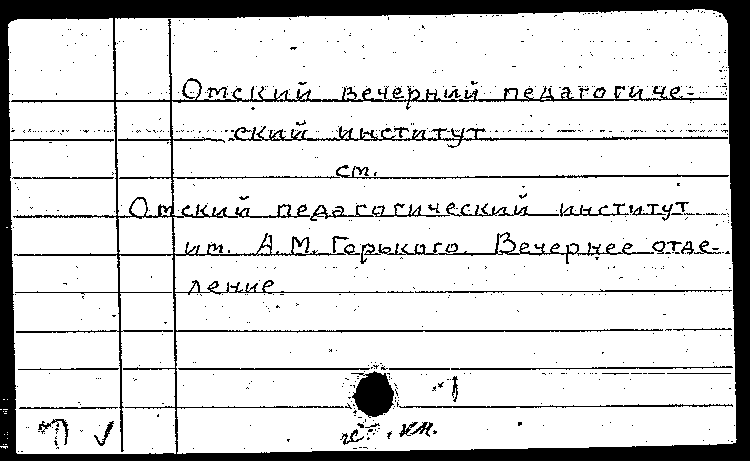 Омский вечерний педагогиче-
ский институт
ст.
Омский педагогический институт
им. А.М. Горького. Вечернее отде-
ление.